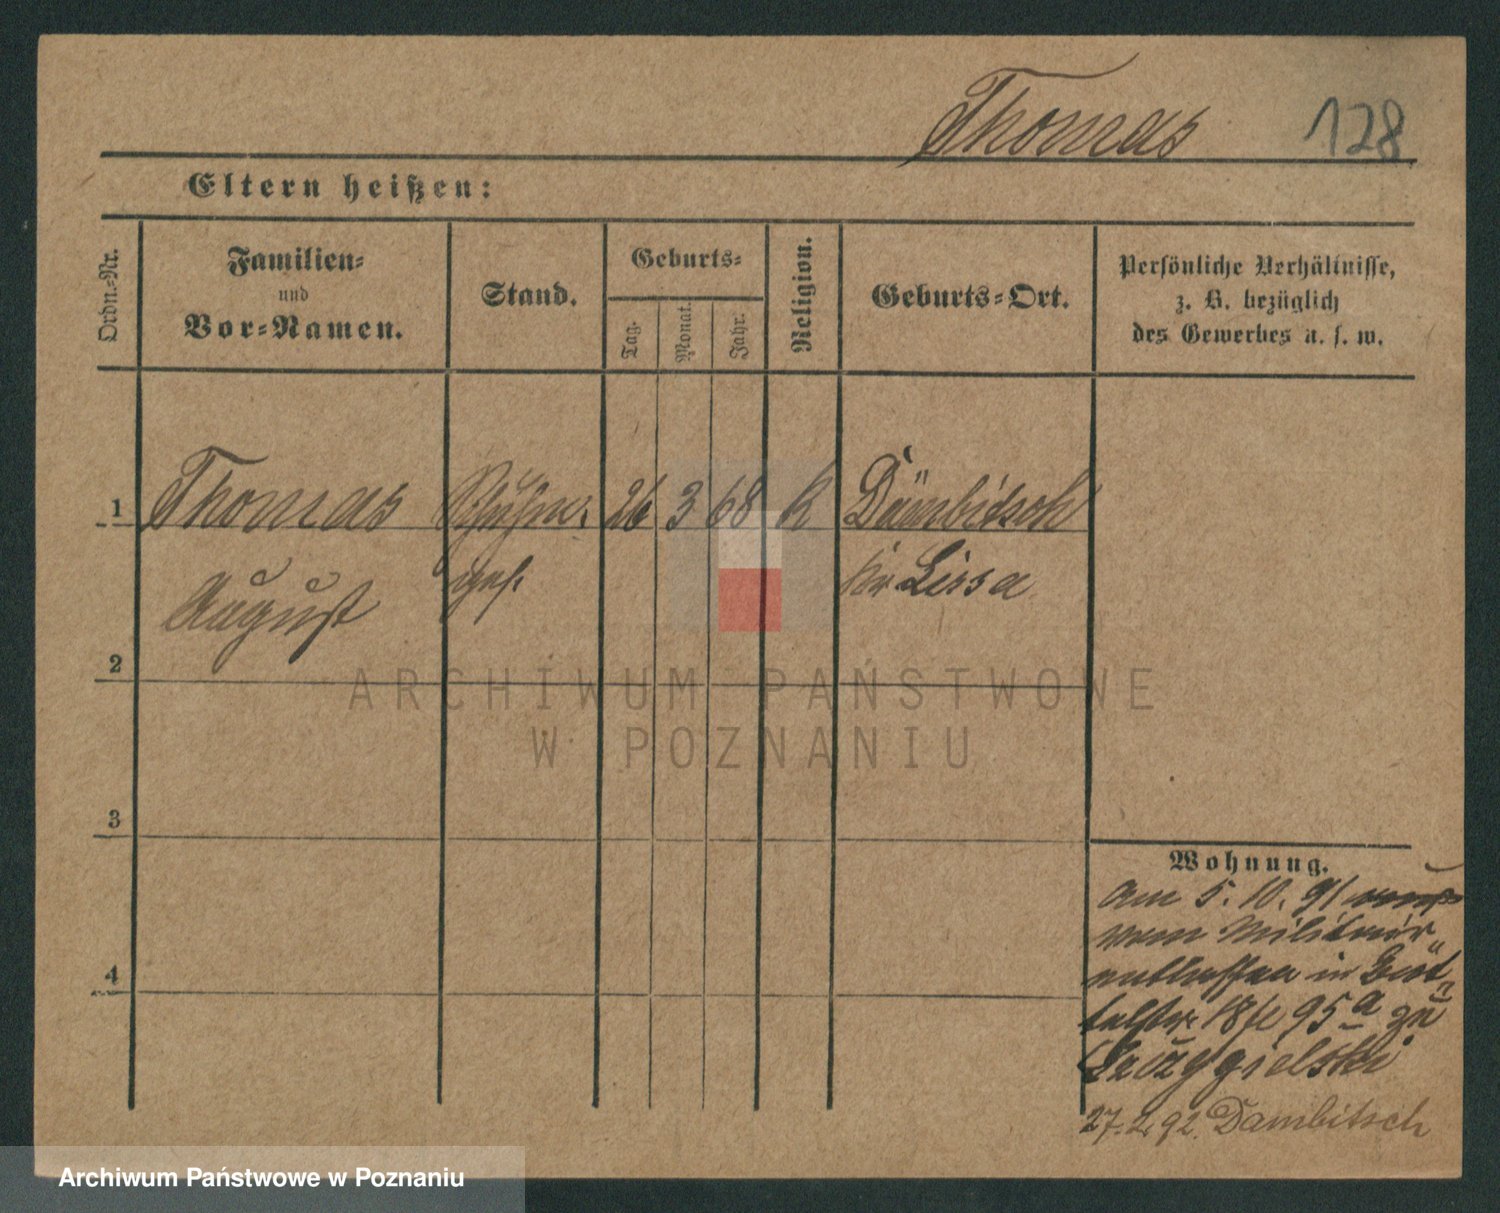 Thomas 128
Eltern heißen:
Ordn.-Nr.
Familien-
und
Vor-Namen.
Stand.
Geburts-
Tag.
Monat.
Jahr.
Religion.
Geburts-Ort.
Persönliche Verhältnisse,
z. B. bezüglich
des Gewerbes u. s. w.
1 Thomas 26 3 68 k Dambitsch
August ges. Kr Lissa
2
ARCHIWUM PAŃSTWOWE
W POZNANIU
3
4
Wohnung.
Am 5. 10. 91
vom Militair
in
18 95a zu
27. 2. 92. Dambitsch
Archiwum Państwowe w Poznaniu